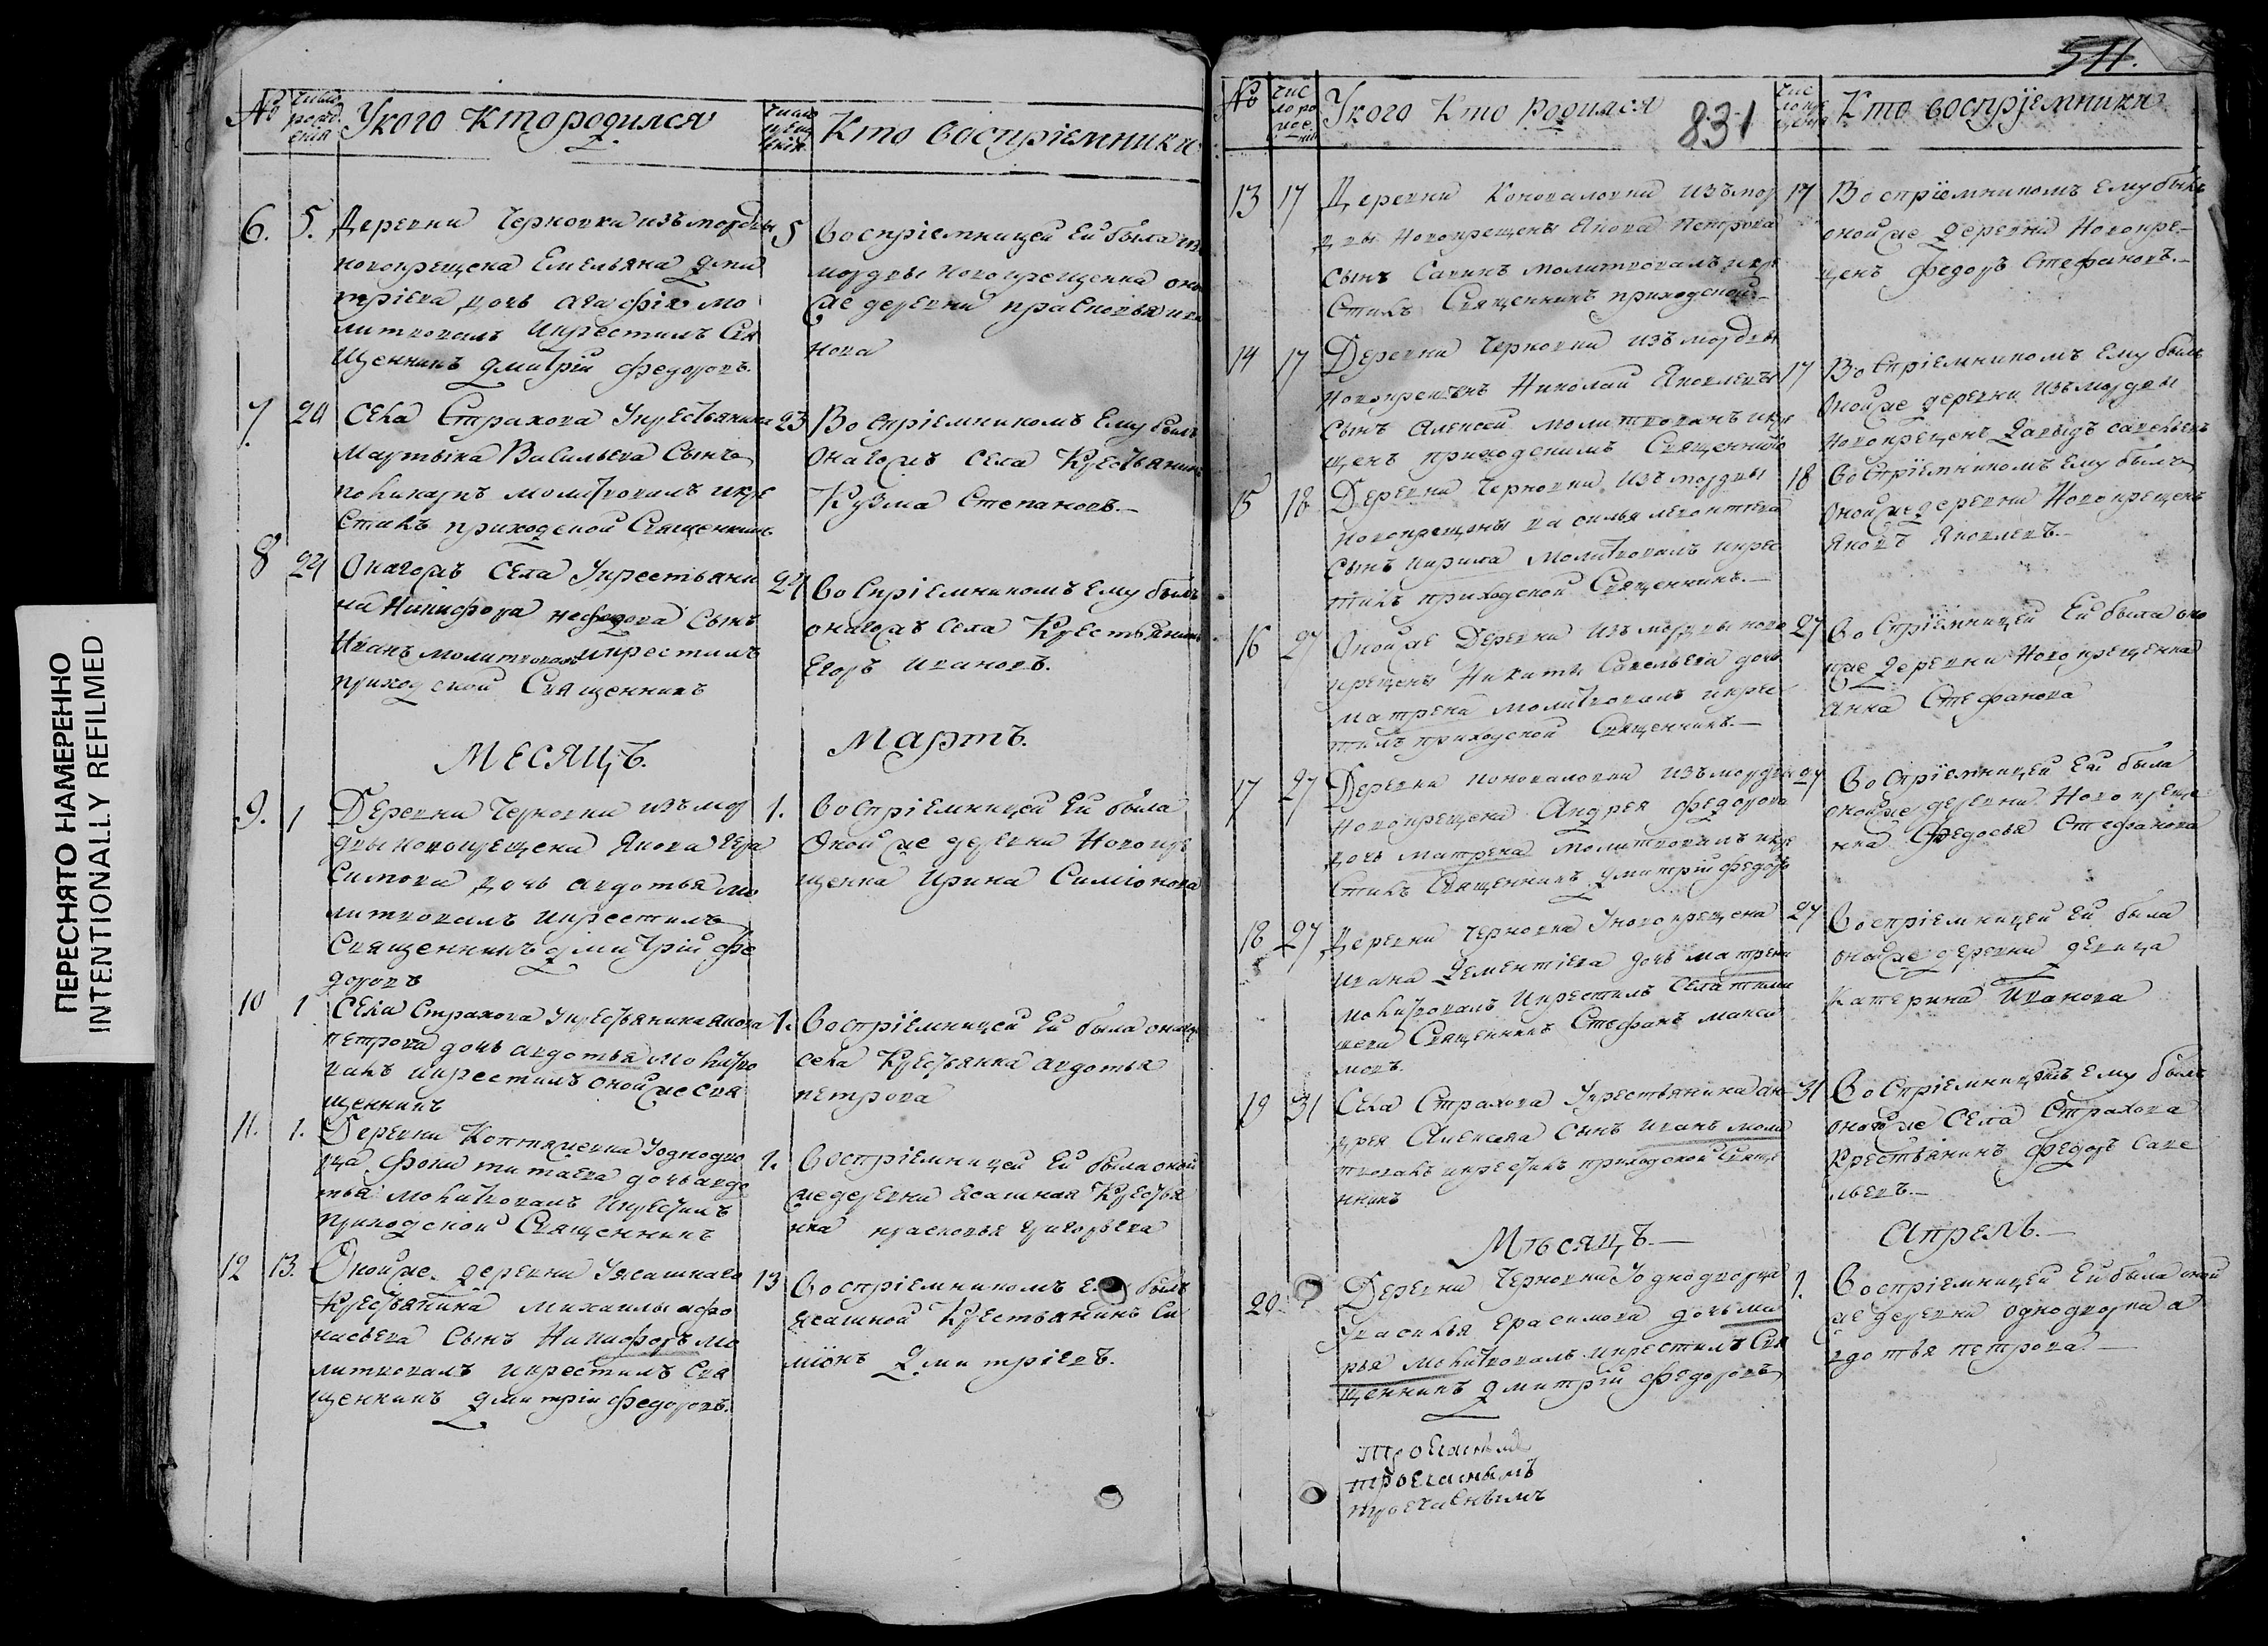 ПЕРЕСНЯТО НАМЕРЕННО
INTENTIONALLY REFILMED
№
Укого Кто родился
Кто восприемники
6. 5.
Деревни Черновки изъ мордвы
новокрещена Емельяна Дми
тріева дочь агафія мо
литвовалъ икрестилъ Свя
щенникъ дмитрій федоровъ.
5
Воспріемницей Ей была изъ
мордвы новокрещенка оно
же деревни прасковья ива
нова
7
Села Страхова Укрестьянина
Мартына Васильева Сынъ
поликарпъ молитвовалъ икре
стилъ приходской Священникъ
23
Воспріемникомъ Ему былъ
Онагожъ села Крестьянинъ
Кузма Степановъ.
8 24
Онагожъ Села Укрестьяни
на Никифора нефедова Сынъ
Иванъ молитвовалъ икрестилъ
приходской Священникъ
24
Воспріемникомъ Ему былъ
онагожъ Села Крестьянинъ
Егоръ ивановъ.
Месяцъ.
Мартъ.
9. 1
Деревни Черновки изъ мор
двы новокрещена Якова Гера
Симова дочь авдотья мо
литвовалъ икрестилъ
Священникъ дмитрій фе
доровъ
1.
Воспріемницей Ей была
Оной же деревни Новокре
щенка Ирина Симіонова
10 1
Села Страхова Укрестьянина Якова
петрова дочь авдотья молитво
валъ икрестилъ оной же свя
щенникъ
1.
Воспріемницей Ей была
села Крестьянка авдотья
петрова
11. 1.
Деревни Коптяжевки Уоднодво
рца фоки титаева дочь авдо
тья молитвовалъ икрестилъ
приходской Священникъ
1.
Воспріемницей Ей была оной
же деревни Ясашная Крестья
нка прасковья григорьева
12 13.
Оной же деревни Уясашнаго
Крестьянина михаилы афо
насьева Сынъ Никифоръ мо
литвовалъ икрестилъ Свя
щенникъ дмитрій федоровъ.
13
Воспріемникомъ Е былъ
Ясашной Крестьянинъ Си
міонъ Дмитріевъ.
511.
831
№
Укого Кто родился
Кто воспріемники
13 17
Деревни Коноваловки изъ мор
двы новокрещены Якова петрова
сынъ Савинъ молитвовалъ икре
Стилъ Священникъ приходской
17
Воспріемникомъ Ему былъ
оной же деревни Новокре-
щенъ федоръ Стефановъ.
14 17
Деревни Черновки изъ мордвы
Новокрещенъ Николай Яковлевъ
Сынъ Алексей молитвованъ икре
щенъ приходскимъ Священникомъ
17
Воспріемникомъ Ему былъ
Оной же деревни изъ мордвы
новокрещенъ Давыдъ савельевъ
15 18
Деревни Черновки изъ мордвы
Новокрещены василья леонтьева
Сынъ кирила молитвовалъ икрес
тилъ приходской Священникъ.
18
Воспріемникомъ Ему былъ
Оной же деревни Новокрещенъ
Яковъ Яковлевъ.
16 27
Оной же Деревни изъ мордвы ново
крещены Никиты Савельева дочь
матрена молитвовалъ икрес
тилъ приходской Священникъ.
27
Воспріемницей Ей была оно
йже деревни Новокрещенка
Анна Стефанова
17 27
Деревни коноваловки изъ мордвы
Новокрещена Андрея федорова
дочь матрена молитвовалъ икре
Стилъ Священникъ дмитрій федоръ
27
Воспріемницей Ей была
оной же деревни Новокреще
нка Федосья Стефанова
18 27
Деревни Черновки Уновокрещена
ивана Дементіева дочь матрена
молитвовалъ икрестилъ Села
Священникъ Стефанъ макси
мовъ.
27
Воспріемницей Ей была
оной же деревни девица
Катерина Иванова
19 31
Села Страхова Укрестьянина ан
дрея Алексева Сынъ иванъ моли
твовалъ икрестилъ приходской Свяще
нникъ
31
Воспріемникомъ Ему былъ
онагоже Села Страхова
Крестьянинъ федоръ Саве
льевъ.
Мѣсяцъ.
Апрель.
20.
Деревни Черновки Уоднодворца
Увасилья Ерасимова дочь ма
рья молитвовалъ икрестилъ Свя
щенникъ дмитрій федоровъ
1.
Воспріемницей Ей была оной
же деревни однодворка а
вдотья петрова